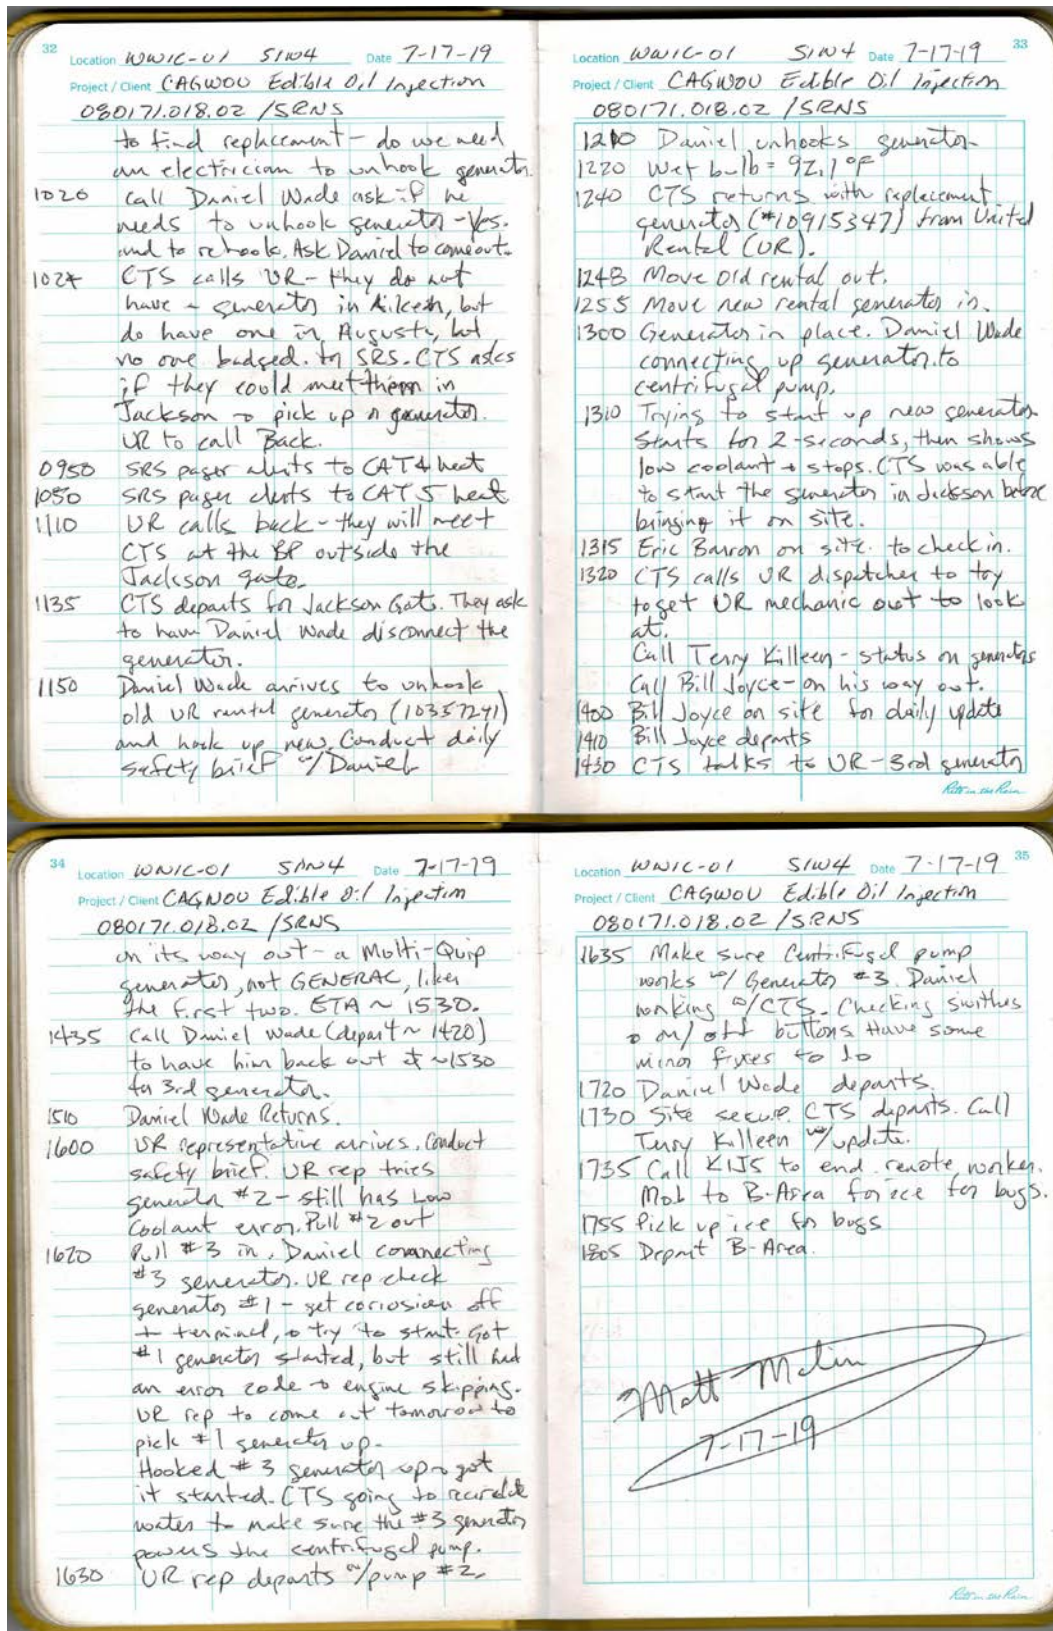 32
Location WWIC-01 SIW4 Date 7-17-19
Project / Client CAGWOU Edible Oil Injection
080171.018.02 /SRNS
to find replacement - do we need
an electrician to unhook generator.
1020 Call Daniel Wade ask if he
needs to unhook generator - Yes.
and to rehook. Ask Daniel to come out.
1027 CTS calls UR - they do not
have a generator in Aiken, but
do have one in Augusta, but
no one badged for SRS. CTS asks
if they could meet them in
Jackson to pick up a generator.
UR to call Back.
0950 SRS pager alerts to CAT 4 heat
1050 SRS pager alerts to CAT 5 heat
1110 UR calls back - they will meet
CTS at the BP outside the
Jackson gate.
1135 CTS departs for Jackson Gate. They ask
to have Daniel Wade disconnect the
generator.
1150 Daniel Wade arrives to unhook
old UR rental generator (10357241)
and hook up new. Conduct daily
safety brief w/ Daniel
33
Location WWIC-01 SIW4 Date 7-17-19
Project / Client CAGWOU Edible Oil Injection
080171.018.02 /SRNS
1210 Daniel unhooks generator
1220 Wet bulb = 92.1 °F
1240 CTS returns with replacement
generator (#10915347) from United
Rental (UR).
1248 Move old rental out.
1255 Move new rental generator in.
1300 Generator in place. Daniel Wade
connecting up generator to
centrifugal pump.
1310 Trying to start up new generator
Starts for 2-seconds, then shows
low coolant & stops. CTS was able
to start the generator in Jackson before
bringing it on site.
1315 Eric Barron on site to check in.
1320 CTS calls UR dispatcher to try
to get UR mechanic out to look
at.
Call Terry Killeen - status on generators
Call Bill Joyce - on his way out.
1400 Bill Joyce on site for daily update
1410 Bill Joyce departs
1430 CTS talks to UR - 3rd generator
Rite in the Rain
34
Location WNIC-01 SIW4 Date 7-17-19
Project / Client CAGWOU Edible Oil Injection
080171.018.02 /SRNS
on its way out - a Multi-Quip
generator, not GENERAC, like
the first two. ETA ~ 1530.
1435 Call Daniel Wade (depart ~ 1420)
to have him back out at ~1530
for 3rd generator.
1510 Daniel Wade Returns.
1600 UR representative arrives. Conduct
safety brief. UR rep tries
generator #2 - still has Low
Coolant error. Pull #2 out
1620 Pull #3 in. Daniel connecting
#3 generator. UR rep check
generator #1 - get corrosion off
+ terminal, & try to start. Got
#1 generator started, but still had
an error code & engine skipping.
UR rep to come out tomorrow to
pick #1 generator up.
Hooked #3 generator up & got
it started. CTS going to recirculate
water to make sure the #3 generator
powers the centrifugal pump.
1630 UR rep departs w/pump #2.
35
Location WNIC-01 SIW4 Date 7-17-19
Project / Client CAGWOU Edible Oil Injection
080171.018.02 /SRNS
1635 Make sure Centrifugal pump
works w/ Generator #3. Daniel
working w/CTS. Checking swithes
& on/off buttons Have some
minor fixes to do
1720 Daniel Wade departs.
1730 Site secure. CTS departs. Call
Terry Killeen w/update.
1735 Call to end remote worker.
Mob to B-Area for ice for bugs.
1755 Pick up ice for bugs
1805 Depart B-Area.
Matt Malin
7-17-19
Rite in the Rain